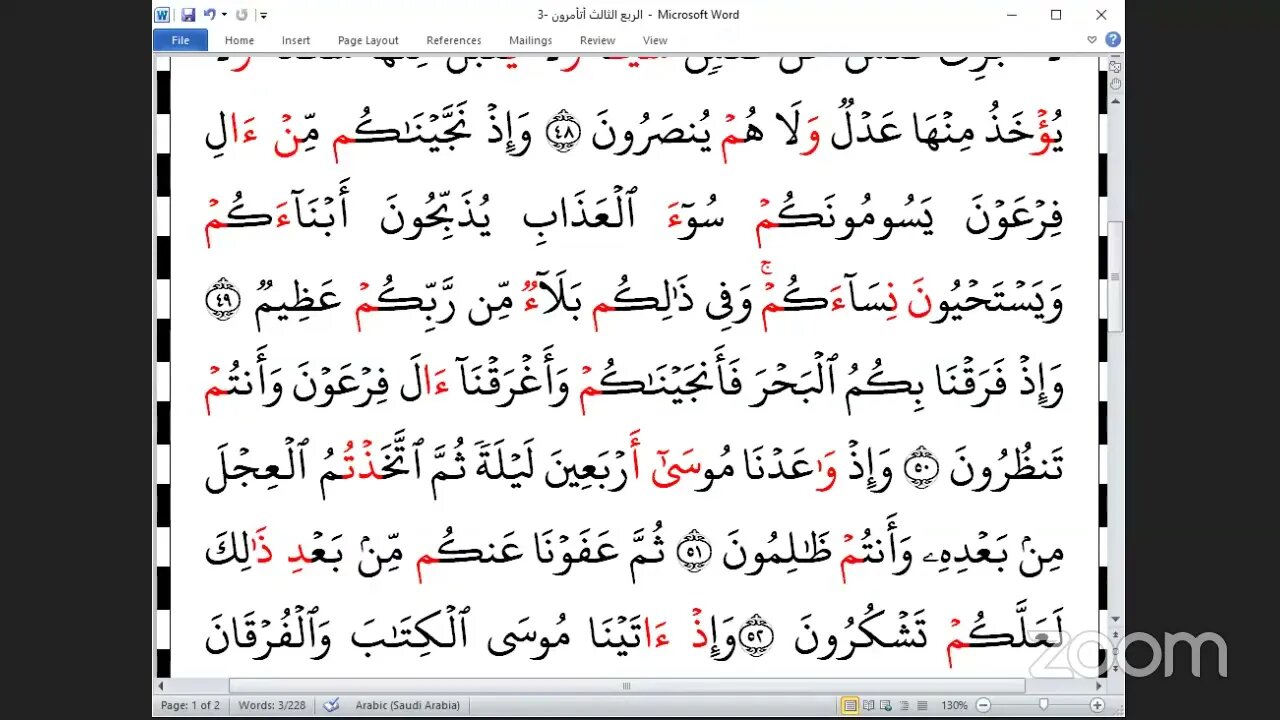 الربع الثالث أتأمرون -3 - Microsoft Word
File Home Insert Page Layout References Mailings Review View
يُؤۡخَذُ مِنۡهَا عَدۡلٞ وَلَا هُمۡ يُنصَرُونَ ٤٨ وَإِذۡ نَجَّيۡنَٰكُم مِّنۡ ءَالِ
فِرۡعَوۡنَ يَسُومُونَكُمۡ سُوٓءَ ٱلۡعَذَابِ يُذَبِّحُونَ أَبۡنَآءَكُمۡ
وَيَسۡتَحۡيُونَ نِسَآءَكُمۡۚ وَفِي ذَٰلِكُم بَلَآءٞ مِّن رَّبِّكُمۡ عَظِيمٞ ٤٩
وَإِذۡ فَرَقۡنَا بِكُمُ ٱلۡبَحۡرَ فَأَنجَيۡنَٰكُمۡ وَأَغۡرَقۡنَآ ءَالَ فِرۡعَوۡنَ وَأَنتُمۡ
تَنظُرُونَ ٥٠ وَإِذۡ وَٰعَدۡنَا مُوسَىٰٓ أَرۡبَعِينَ لَيۡلَةٗ ثُمَّ ٱتَّخَذۡتُمُ ٱلۡعِجۡلَ
مِنۢ بَعۡدِهِۦ وَأَنتُمۡ ظَٰلِمُونَ ٥١ ثُمَّ عَفَوۡنَا عَنكُم مِّنۢ بَعۡدِ ذَٰلِكَ
لَعَلَّكُمۡ تَشۡكُرُونَ ٥٢ وَإِذۡ ءَاتَيۡنَا مُوسَى ٱلۡكِتَٰبَ وَٱلۡفُرۡقَانَ
zoom
Page: 1 of 2 Words: 3/228 Arabic (Saudi Arabia) 130%